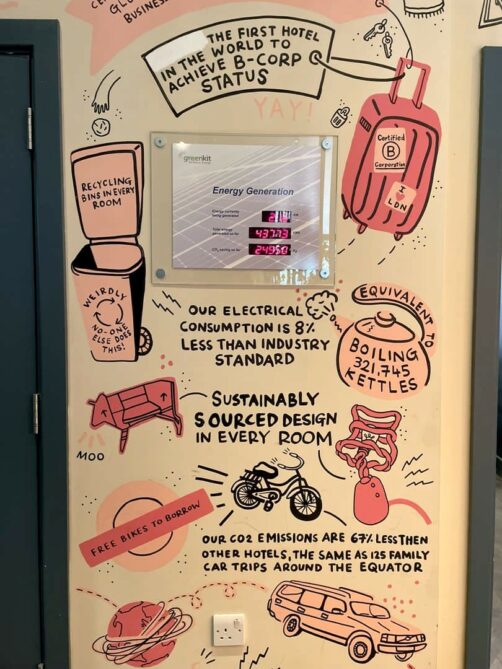 BUSINESS
THE FIRST HOTEL
IN THE WORLD TO
ACHIEVE B-CORP
STATUS
YAY!
Certified
B
Corporation
I ♥
LDN
greenkit
Energy Generation
Energy currently
being generated
Total energy
generated so far
437.73
CO₂ saving so far
RECYCLING
BINS IN EVERY
ROOM
WEIRDLY
NO-ONE
ELSE DOES
THIS!
OUR ELECTRICAL
CONSUMPTION IS 8%
LESS THAN INDUSTRY
STANDARD
EQUIVALENT TO
BOILING
321,745
KETTLES
MOO
SUSTAINABLY
SOURCED DESIGN
IN EVERY ROOM
FREE BIKES TO BORROW
OUR CO2 EMISSIONS ARE 67% LESS THEN
OTHER HOTELS, THE SAME AS 125 FAMILY
CAR TRIPS AROUND THE EQUATOR